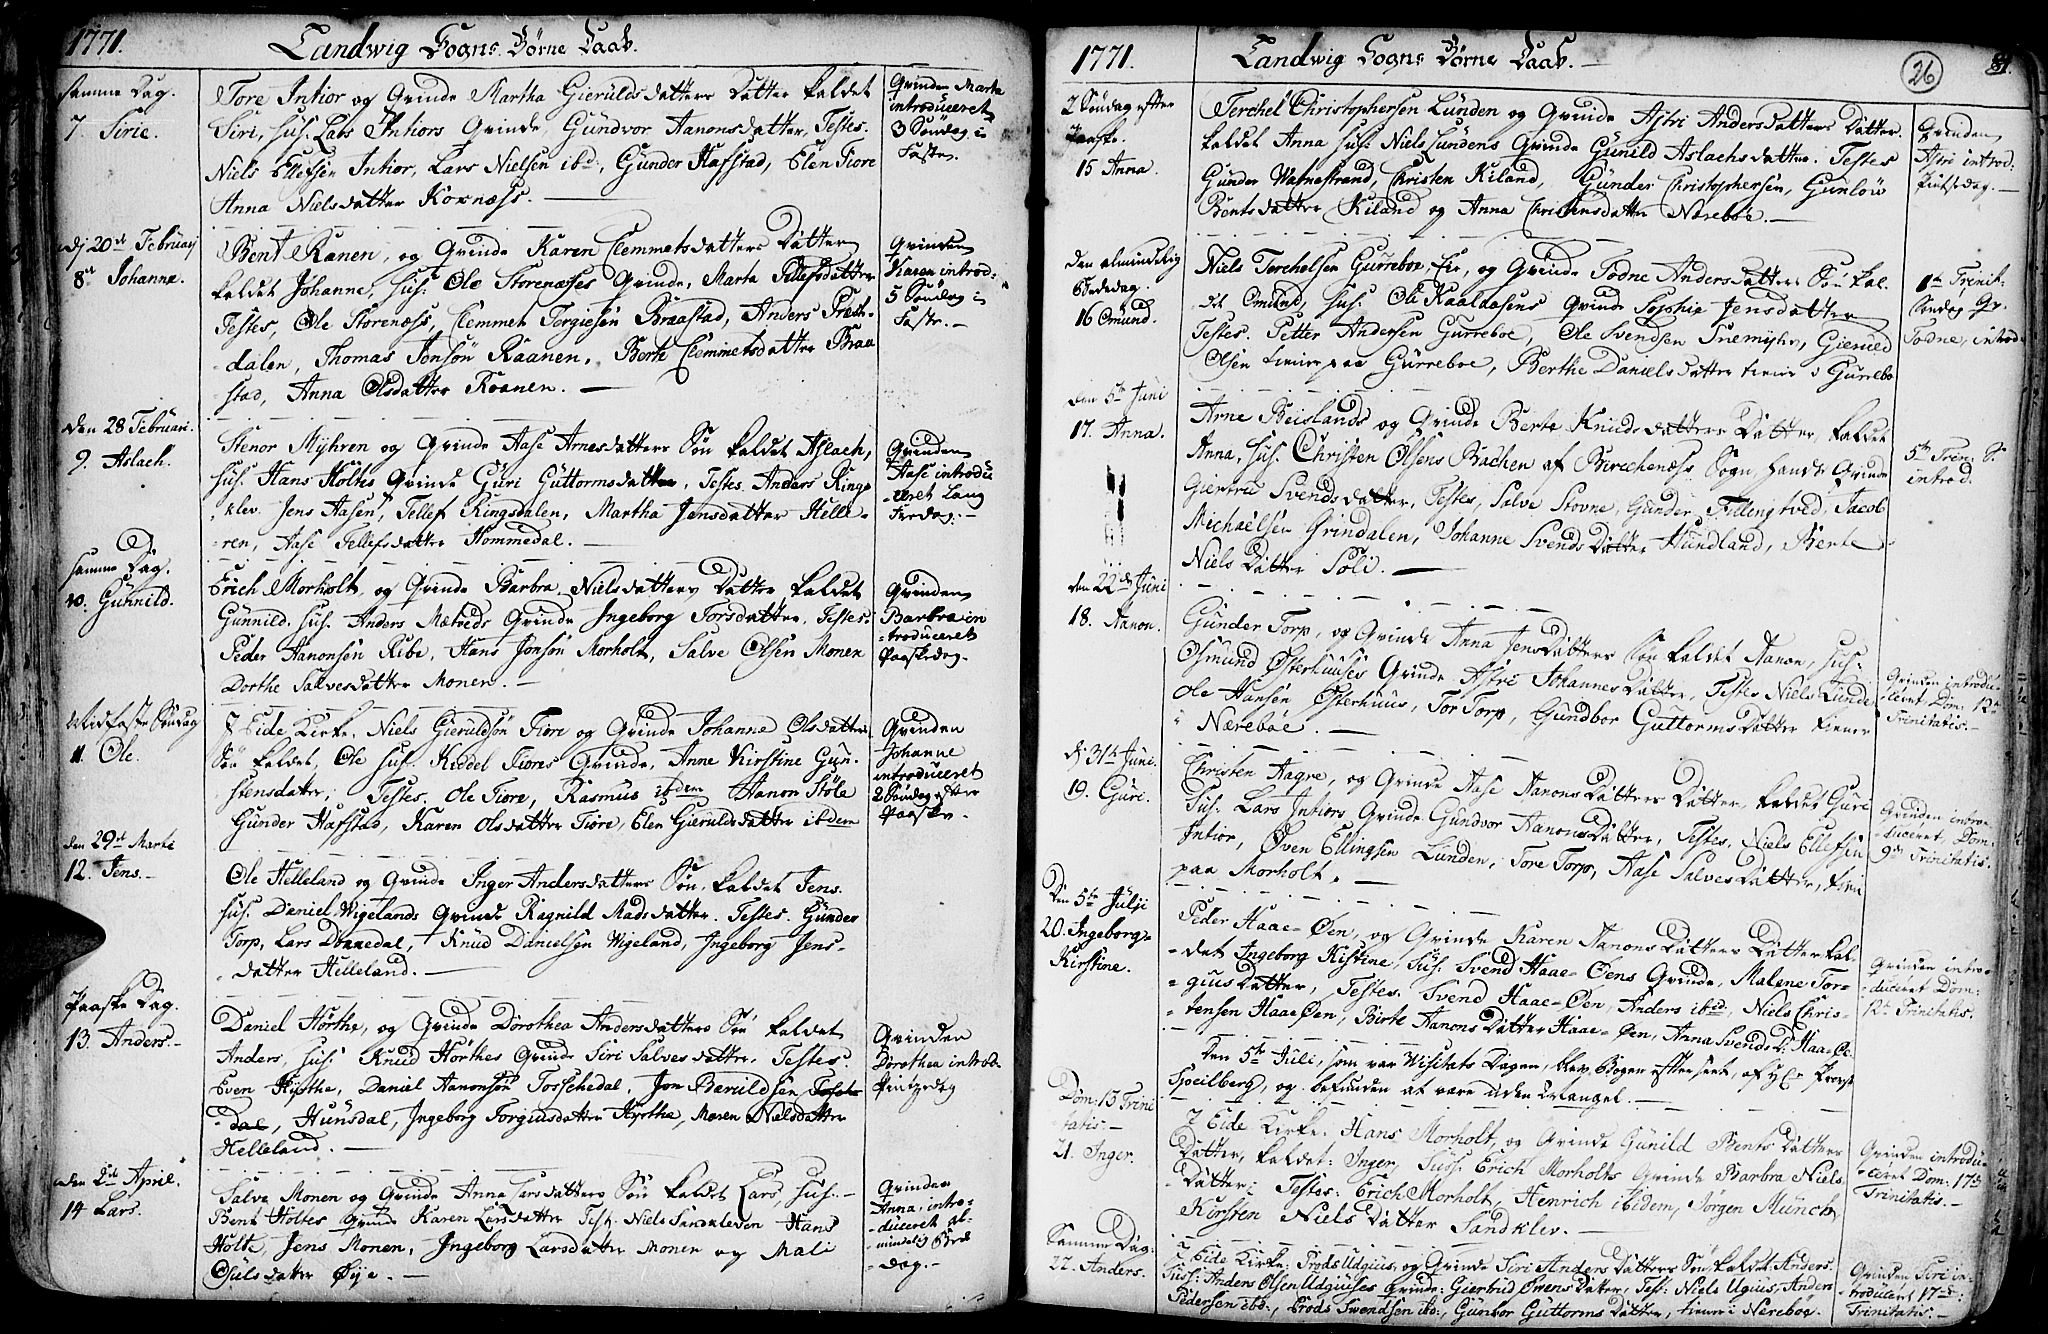 1771. Landwig Sogns Børne Daab.
Samme Dag.
7. Sirie.
Tore Intior og Qvinde Martha Gieruldsdatters Datter kaldet
Siri, sus. Lars Intiors Qvinde, Gundvor Aanonsdatter, Testes.
Niels Ellefsen Intior, Lars Nielsen ibd:, Gunder Hafstad, Elen Fiore
Anna Nielsdatter Kornæss. —
Qvinden Marta
introduceret
3 Søndag i
Faste.
dj 20de Februarij
8de Johanne.
Bent Ranen, og Qvinde Karen Clemmetsdatters Datter
kaldet Johanne, sus: Ole Storenæsses Qvinde, Marta Tellefsdatter
Testes, Ole Storenæss, Clemmet Torgiesen Braastad, Anders Præst-
dalen, Thomas Jonsøn Raanen, Berte Clemmetsdatter Braa
stad, Anna Olsdatter Roanen. —
Qvinden
Karen introd:
5 Søndag i
Faste. —
den 28 Februari.
9. Aslach.
Stenor Myhren og Qvinde Aase Arnesdatters Søn kaldet Aslach,
sus. Hans Holtes Qvinde Guri Guttormsdatter, Testes Anders Rings
klev. Jens Aasen, Tellef Ringsdalen, Martha Jensdatter Helle-
ren, Aase Tellefsdatter Hommedal. —
Qvinden
Aase introdu
ceret Lang
Fredag. —
Samme Dag.
10. Gunnild.
Erich Morholt og Qvinde Barbra Nielsdatters Datter kaldet
Gunnild. sus. Anders Mætveds Qvinde Ingeborg Torsdatter. Testes.
Peder Aanonsøn Ribe, Hans Jonsøn Morholt, Salve Olsen Monen
Dorthe Salvesdatter Monen. —
Qvinden
Barbra in
troduceret
Paaskedag.
Midfaste Søndag
11. Ole.
I Eide Kirke. Niels Gieruldsøn Fiore og Qvinde Johanne Olsdatters
Søn kaldet, Ole sus. Keddel Fiores Qvinde, Anne Kirstine Gun-
stensdatter, Testes. Ole Fiore, Rasmus ibdem Aanon Støle
Gunder Hafstad, Karen Olsdatter Fiore, Elen Gieruldsdatter ibdem
Qvinden
Johanne
introduceret
2 Søndag efter
Paaske.
den 29de Marti
12. Jens. —
Ole Helleland og Qvinde Inger Andersdatters Søn, kaldet Jens.
sus. Daniel Wigelands Qvinde Ragnild Madsdatter. Testes. Gunder
Torp, Lars Dønnedal, Knud Danielsen Wigeland, Ingeborg Jens-
datter Helleland. —
Paaske Dag.
13. Anders. —
Daniel Hørthe, og Qvinde Dorothea Andersdatters Søn kaldet
Anders, sus. Knud Hørthes Qvinde Siri Salvesdatter. Testes.
Even Hørthe, Daniel Aanonsøn Tosschedal, Jon Baruldsen
Hunsdal, Ingeborg Torgiusdatter Hørthe, Maren Nielsdatter
Helleland. —
Qvinden
Dorothea introd.
Pintzedag
den 2de April.
14 Lars.
Salve Monen og Qvinde Anna Larsdatters Søn kaldet Lars, sus. —
Bent Holtes Qvinde Karen Larsdatter Test. Niels Sandkleven Hans
Holte, Jens Monen, Ingeborg Larsdatter Monen og Mali
Osulsdatter Øye. —
Qvinden
Anna, intro-
duceret al-
mindelig Bede
dag. —
1771. Landwig Sogns Børne Daab. —
26
2 Søndag efter
Paaske.
15 Anna.
Terchel Christophersen Lunden og Qvinde Astri Andersdatters Datter.
kaldet Anna sus: Niels Lundens Qvinde Gunild Aslachsdatter. Testes
Gunder Watnestrand, Christen Kiland, Gunder Christophersen, Gunlou
Bentsdatter Kiland og Anna Christensdatter Næreboe. —
Qvinden
Astri introd:
Pintsedag. —
den almindelig
Bededag.
16 Omund.
Niels Terchelsen Gurreboe, Eie, og Qvinde Todne Andersdatters Søn kal-
det Omund, sus: Ole Kaaldasens Qvinde Sophie Jensdatter
Testes. Petter Andersen Gurreboe, Ole Svendsen Tnemyhr, Gieruld
Olsen tienir paa Gurreboe, Berthe Danielsdatter tienir i Gurrebo
1te Trinit.
Søndag Qv.
Todne, introd.
den 5te Juni
17. Anna.
Arne Beislands og Qvinde Berte Knudsdatters Datter, kaldet
Anna, sus. Christen Olsens Bachen af Birchenæss Sogn, hands Qvinde
Giertru Svendsdatter, Testes, Salve Stovne, Gunder Fillengtved, Jacob
Michaelsen Grindalen, Johanne Svends Datter Hundland, Berte
Niels Datter Søli. —
5te Trin: S.
introd.
den 22de Juni
18. Aanon.
Gunder Torp, og Qvinde Anna Jensdatters Søn kaldet Aanon, sus.
Osmund Østerhuuses Qvinde Astri JohannesDatter, Testes Niels Lunde
Ole Hansen Østerhuus, Tor Torp, Gundbor GuttormsDatter tiener
i Nærebøe. —
Qvinden introdu-
ceret Dom: 12te
Trinitatis. —
dj 31te Juni.
19. Guri.
Christen Aagre, og Qvinde Aase AanonsDatters Datter, kaldet Guri
Sus. Lars Intiors Qvinde Gundvor AanonsDatter, Testes, Niels Ellefsen
Intior, Øven Ellingsen Lunden, Tore Torp, Aase SalvesDatter, tien
paa Morholt. —
Qvinden intro-
duceret, Dom:
9de Trinitatis.
Den 5te Julji
20. Ingeborg-
Kirstine.
Peder Haae-Øen, og Qvinde Karen AanonsDatters Datter kal-
det Ingeborg Kistine, sus. Svend Haae-Øens Qvinde, Malene Tor-
giusDatter, Testes. Svend Haae-Øen, Anders ibid, Niels Chris-
tensen Haae-Øen, Birte AanonsDatter Haae-Øen, Anna SvendsD: Haae-Øe.
Qvinden intro-
duceret Dom:
12te Trinitatis.
Den 5te Juli, som var Visitats Dagen, blev Bogen efterseet, af
og befunden at være uden Mangel. —
Dom: 13 Trini
tatis. —
21. Inger.
I Eide Kirke. Hans Morholt, og Qvinde Gunild Bents Datters
Datter, kaldet: Inger, Suss: Erich Morholts Qvinde Barbra Niels
Datter; Testes: Erich Morholt, Henrich ibidem, Jørgen Munch,
Kirsten Niels Datter Sandklev. —
Qvinden introdu-
ceret Dom: 17de
Trinitatis. —
Samme Dag:
22. Anders.
I Eide Kirke: Frods Udgius, og Qvinde Siri Anders Datters Søn, kaldet: Anders.
Suss: Anders Olsen Udgiuses Qvinde: Giertrud Evens Datter, Test: Niels Ugius, Anders
Pedersen ibd:, Frods Svendsen ibd:, Gunbor Guttorms Datter, tienir i Nereboe.
Qvinden Siri in-
troduceret 17de
Trinitatis. —